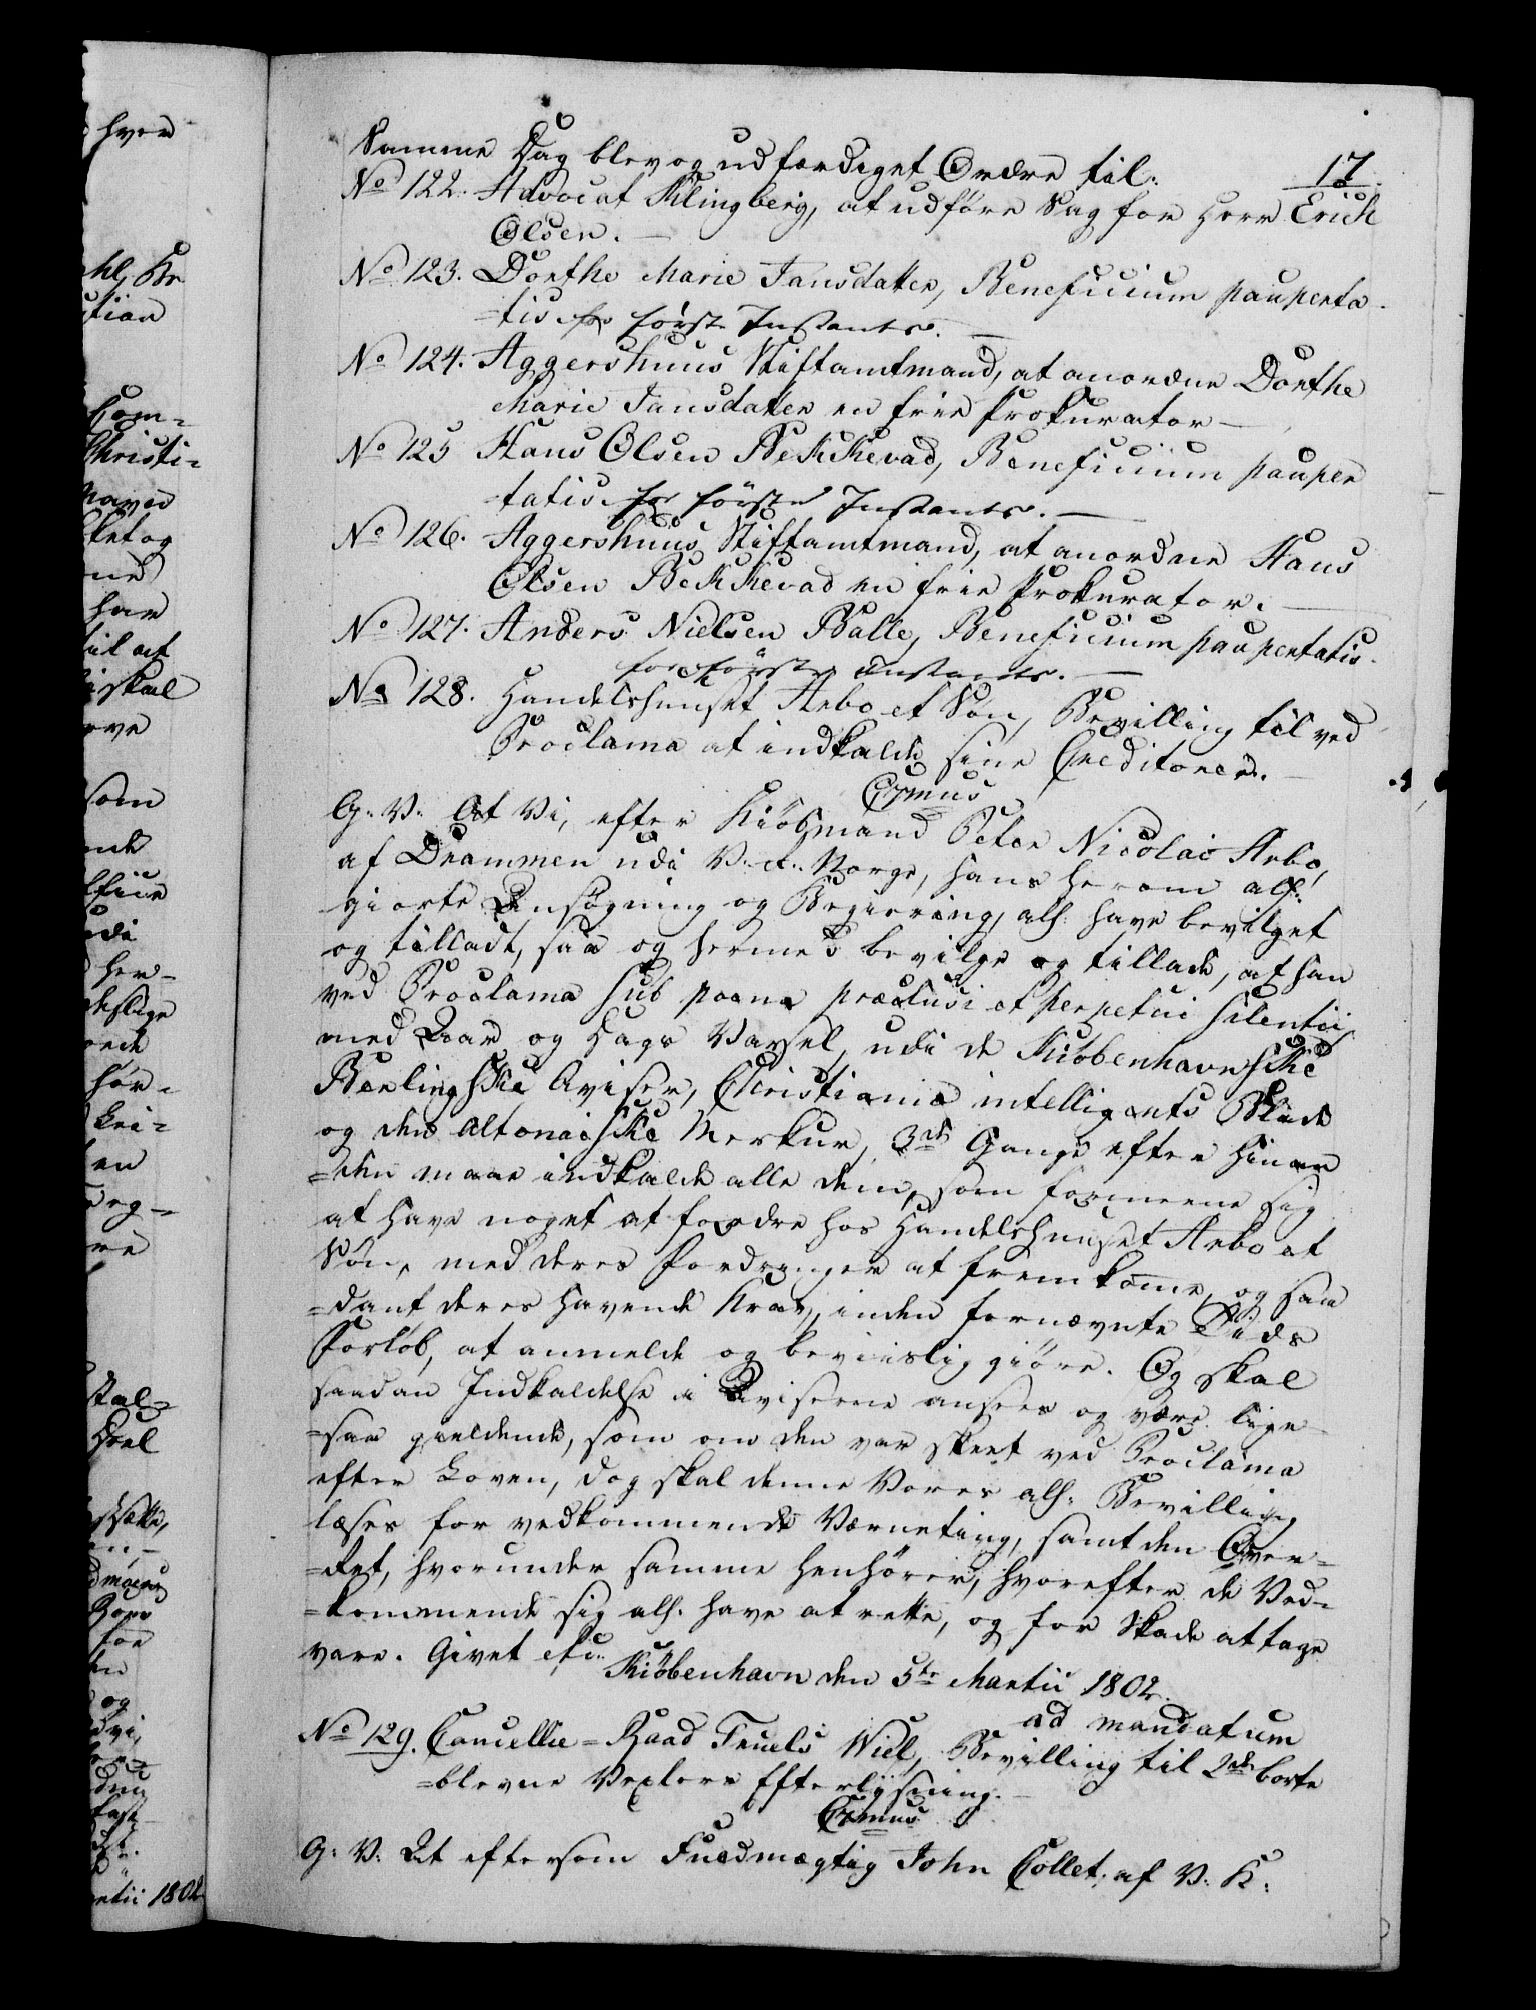 hver
hl, Kr.
stian
Kom-
Christi-
ket og
ne
har
til at
skal
ove
som
ende
udi
her-
deslige
hör-
kri-
en
Samme Dag blev og udfærdiget Ordre til:
17.
No 122. Advocat Klingberg, at udføre Sag for Herr Erich
Olsen. —
No 123. Dorthe Marie Jansdatter, Beneficium pauperta
=tis for første Instants. —
No 124. Aggershuus Stiftamtmand, at anordne Dorthe
Marie Jansdatter en frie Prokurator —
No 125 Hans Olsen Bekkevad, Beneficium pauper
=tatis for første Instants. —
No 126. Aggershuus Stiftamtmand, at anordne Hans
Olsen Bekkevad en frie Prokurator. —
No 127. Anders Nielsen Balle, Beneficium paupertatis
for første Instants. —
No 128. Handelshuuset Arbo et Søn, Bevilling til ved
Proclama at indkalde sine Creditorer. —
G: V: At Vi, efter Kiøbmand Peter Nicolai Arbo,
af Drammen udi V. R. Norge, hans herom all:
giorte Ansøgning og Begiering, all: have bevilget
og tilladt, saa og hermed bevilge og tillade, at han
ved Proclama sub poena præclusi et perpetui silentii
med Aar og Dags Varsel, udi de Kiøbenhavnske
Berlingske Aviser, Christiania intelligents Blade
og den Altonaiske Merkur, 3de Gange efter hinan
=den maae indkalde alle dem, som formeene sig
at have noget at fordre hos Handelshuuset Arbo et
Søn, med deres Fordringer at fremkome, og saa
=dant deres havende Krav, inden fornævnte Tids
Forløb, at anmelde og beviisliggiøre. Og skal
saadan Indkaldelse i Aviserne ansees og være lige
=saa gieldende, som om den var skeet ved Proclama
efter Loven, dog skal denne Vores all: Bevilling
læses for vedkommende Værneting, samt den Over-
=Ret, hvorunder samme henhører, hvorefter de Ved-
=kommende sig all: have at rette, og for Skade at tage
vare. Givet etc:
Kiøbenhavn den 5te Martii 1802.
ad mandatum
No 129. Cancellie-Raad Truels Wiel, Bevilling til 2de borte
=blevne Vexlers Efterlysning. —
G: V: At eftersom Fuldmægtig John Collet, af V: K: